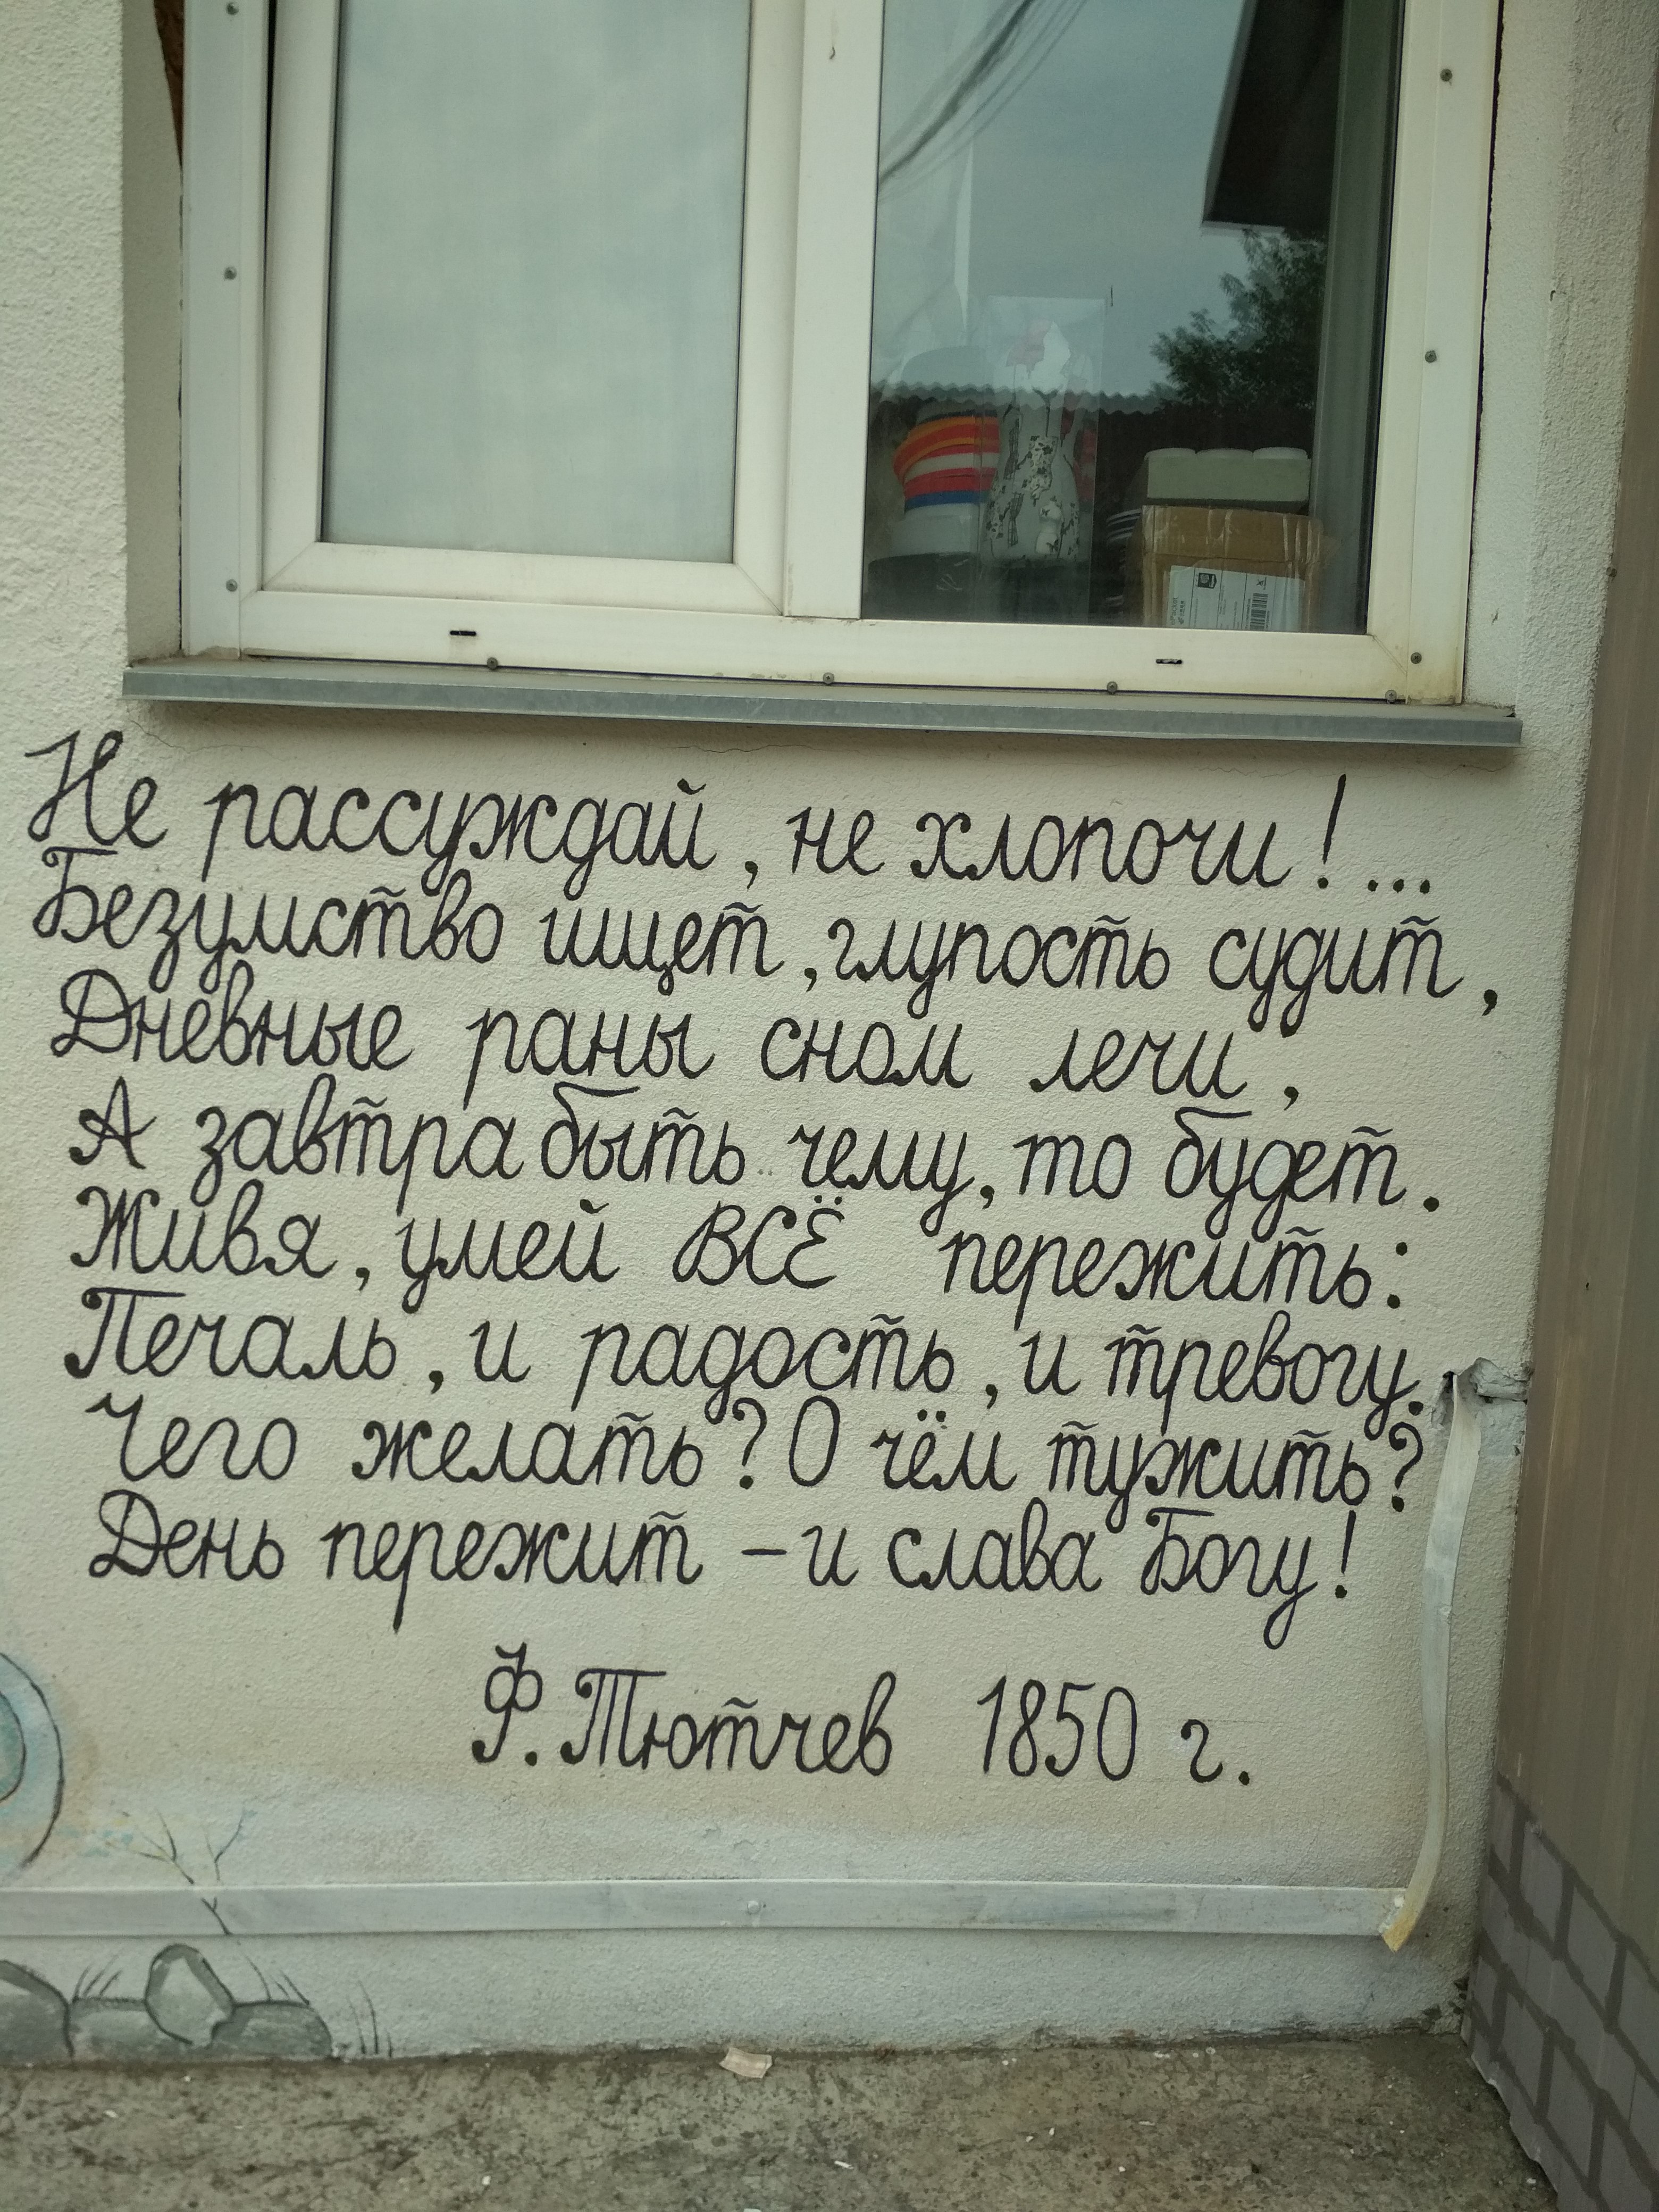 Не рассуждай, не хлопочи!...
Безумство ищет, глупость судит,
Дневные раны сном лечи,
А завтра быть чему, то будет.
Живя, умей ВСЁ пережить:
Печаль, и радость, и тревогу.
Чего желать? О чём тужить?
День пережит – и слава Богу!
Ф. Тютчев 1850 г.